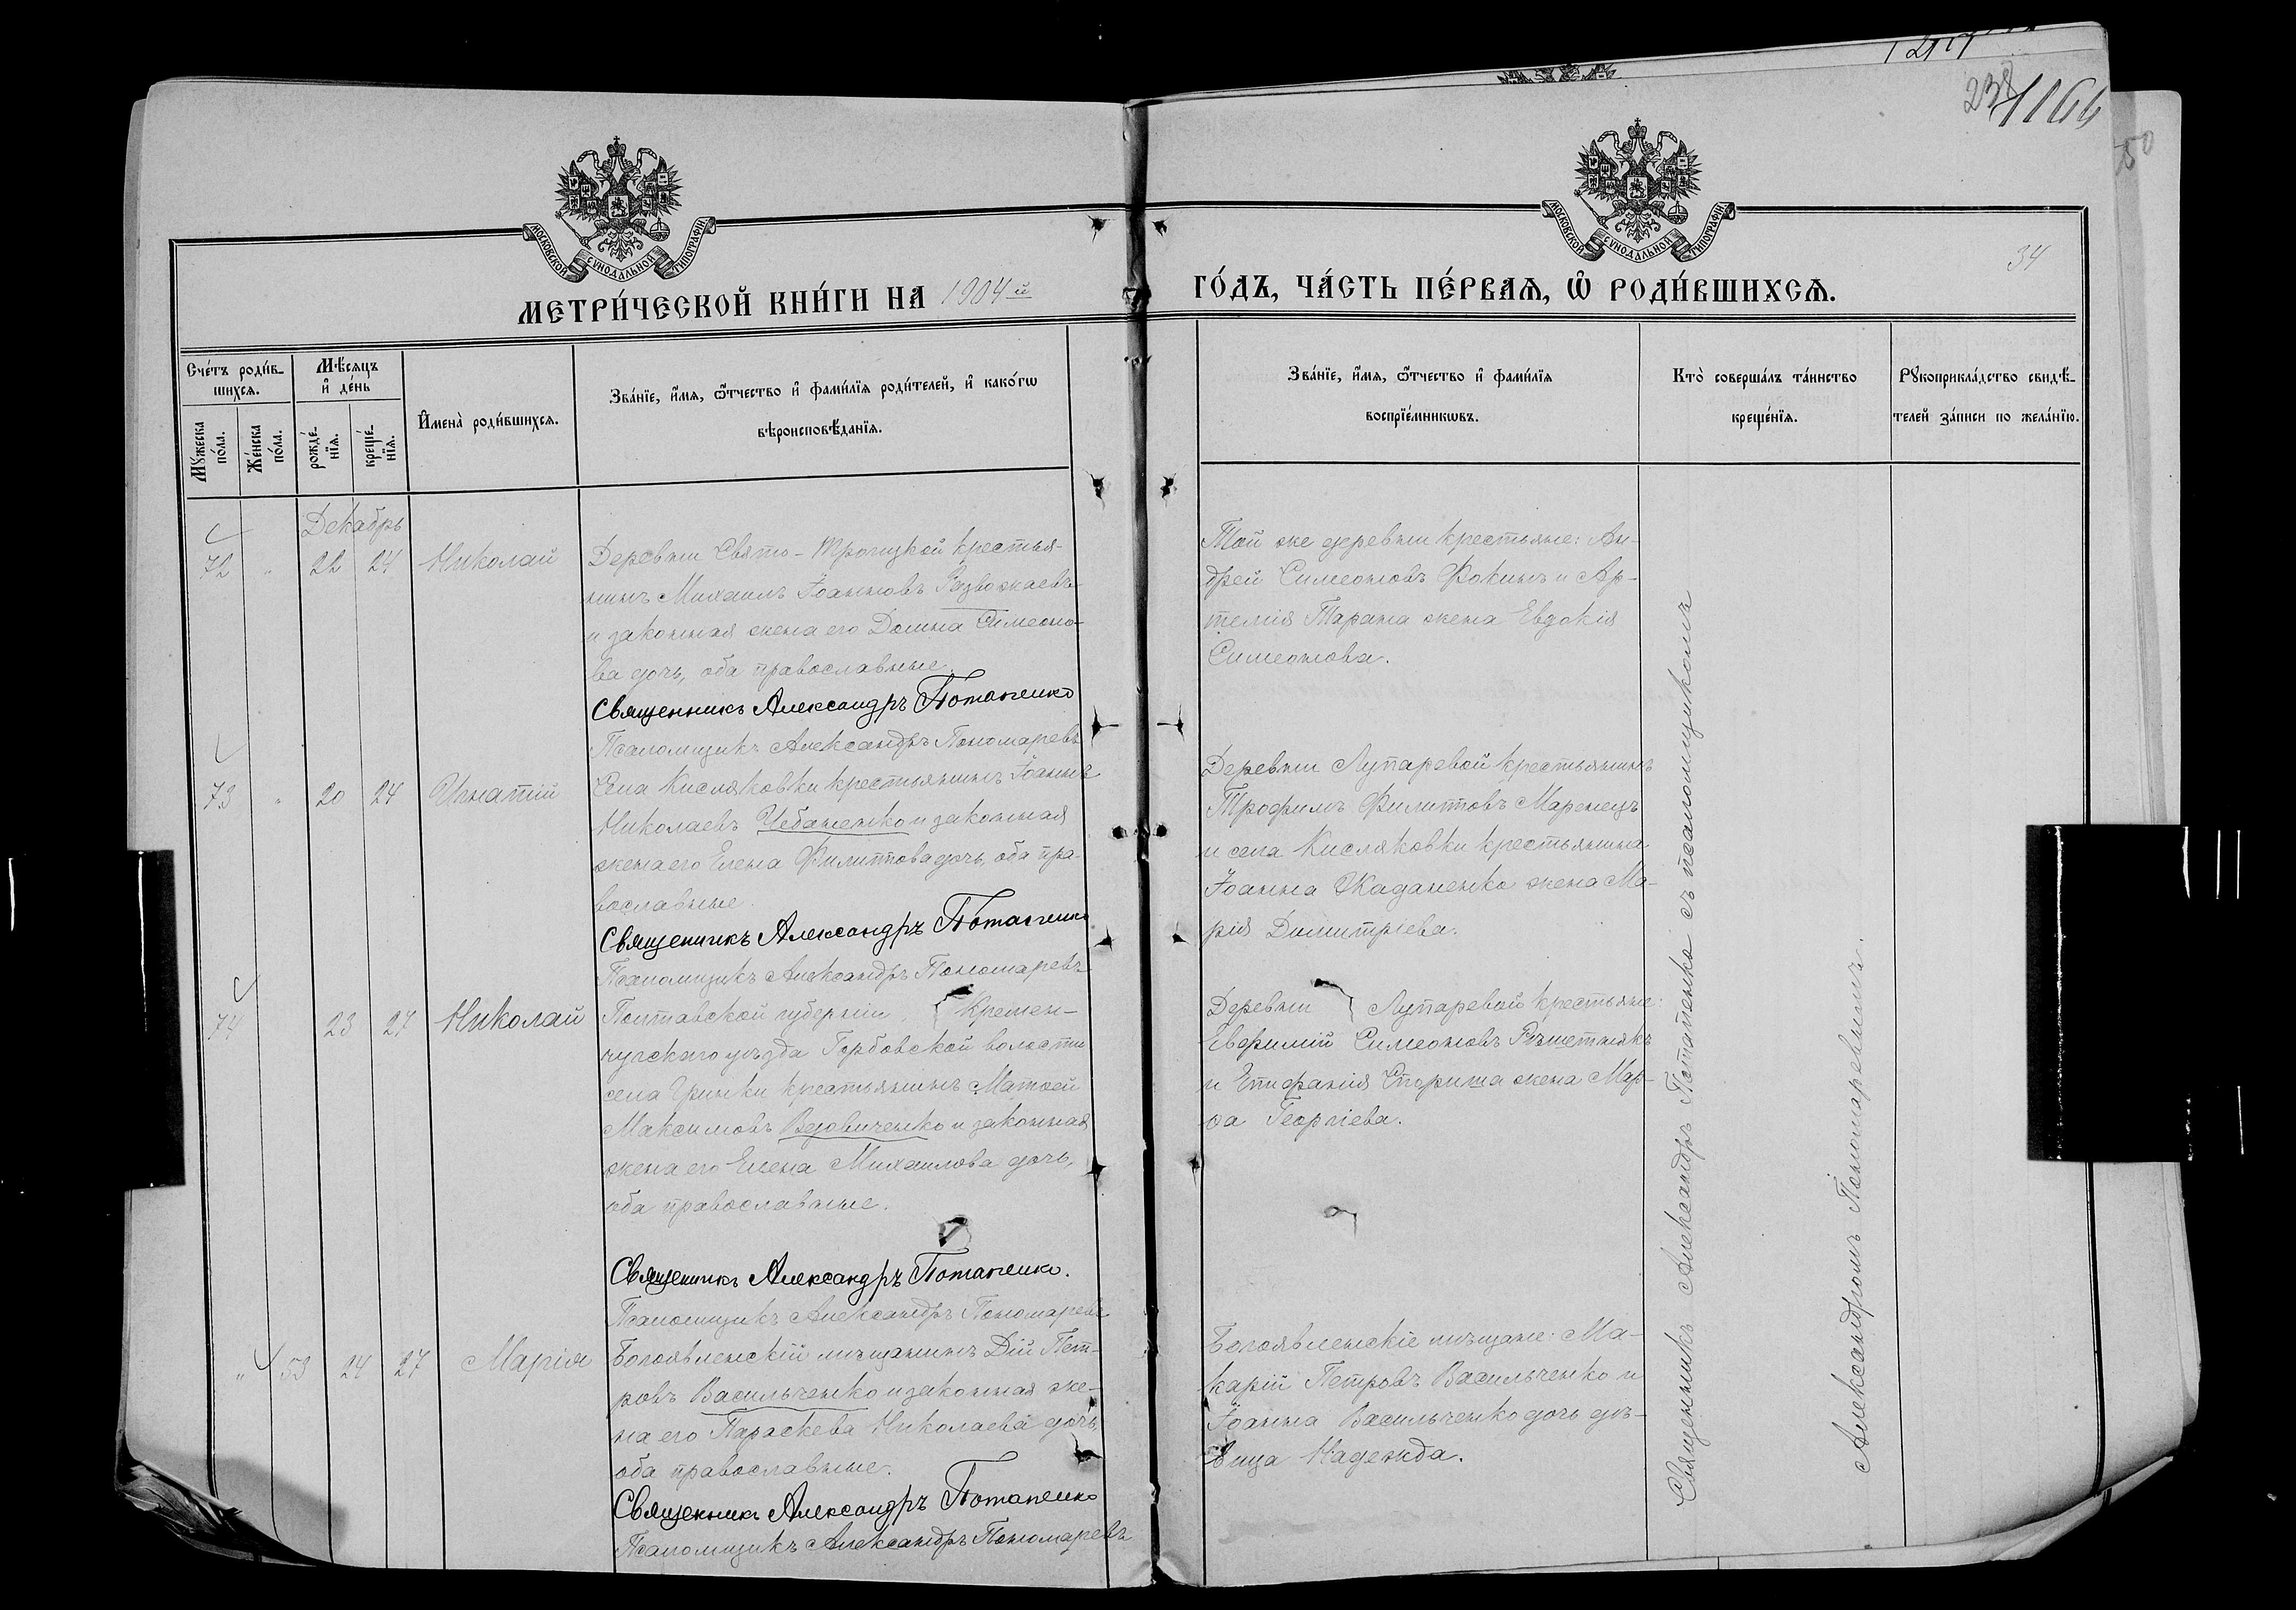 1166
238
50
34
МОСКОВСКОЙ СѴНОДАЛЬНОЙ ТИПОГРАФІИ
МОСКОВСКОЙ СѴНОДАЛЬНОЙ ТИПОГРАФІИ
МЕТРИ́ЧЕСКОЙ КНИ́ГИ НА 1904й
ГО́ДЪ, ЧА́СТЬ ПЕ́РВАѦ, Ѽ РОДИ́ВШИХСѦ.
Сче́тъ роди́в-
шихсѧ.
Мѣ́сѧцъ
и҆ де́нь
Мꙋ́жеска
по́ла.
Же́нска
по́ла.
рожде́-
нїѧ.
креще́-
нїѧ.
И҆мена̀ роди́вшихсѧ.
Зва́нїе, и҆́мѧ, ѻ҆́тчество и҆ фами́лїѧ роди́телей, и҆ како́гѡ
вѣроисповѣ́данїѧ.
Зва́нїе, и҆́мѧ, ѻ҆́тчество и҆ фами́лїѧ
воспрїе́мникѡвъ.
Кто̀ соверша́лъ та́инство
креще́нїѧ.
Рꙋкоприкла́дство свидѣ́-
телей за́писи по жела́нїю.
Декабрь
72 „ 22 24 Николай
Деревни Свято-Троицкой крестья-
нинъ Михаилъ Іоанновъ Развожаевъ
и законная жена его Домна Симеоно-
ва дочь, оба православные.
Священникъ Александръ Потапенко
Псаломщикъ Александръ Пономаревъ
Той же деревни крестьяне: Ан-
дрей Симеоновъ Фокинъ и Ар-
темія Тарана жена Евдокія
Симеонова.
73 „ 20 24 Игнатій
Села Кисляковки крестьянинъ Іоаннъ
Николаевъ Чебаненко и законная
жена его Елена Филиппова дочь, оба пра-
вославные.
Священникъ Александръ Потапенко
Псаломщикъ Александръ Пономаревъ
Деревни Лупаревой крестьянинъ
Трофимъ Филипповъ Маренецъ
и села Кисляковки крестьянина
Іоанна Жаданенко жена Ма-
рія Димитріева.
74 23 27 Николай
Полтавской губерніи Кремен-
чугскаго уѣзда Горбовской волости
села Гриньки крестьянинъ Матѳей
Максимовъ Вдовиченко и законная
жена его Елена Михаилова дочь,
оба православные.
Священникъ Александръ Потапенко.
Псаломщикъ Александръ Пономаревъ
Деревни Лупаревой крестьяне:
Евфимій Симеоновъ Рѣшетнякъ
и Епифанія Спориша жена Мар-
ѳа Георгіева.
„ 53 24 27 Марія
Богоявленскій мѣщанинъ Дій Пет-
ровъ Васильченко и законная же-
на его Параскева Николаева дочь,
оба православные.
Священникъ Александръ Потапенко
Псаломщикъ Александръ Пономаревъ
Богоявленскіе мѣщане: Ма-
карій Петровъ Васильченко и
Іоанна Васильченко дочь дѣ-
вица Надежда.
Священникъ Александръ Потапенко съ псаломщикомъ
Александромъ Пономаревымъ.